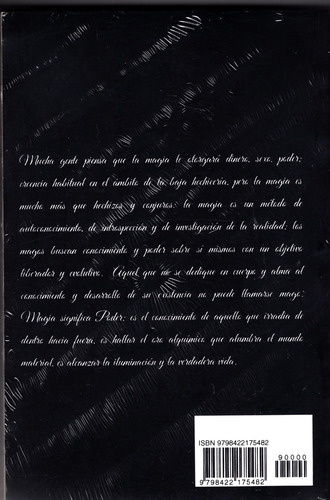 Mucha gente piensa que la magia le otorgará dinero, sexo, poder;
creencia habitual en el ámbito de la baja hechicería, pero la magia es
mucho más que hechizos y conjuros; la magia es un método de
autoconocimiento, de introspección y de investigación de la realidad;
los magos buscan conocimiento y poder sobre sí mismos con un objetivo
liberador y evolutivo. Aquel que no se dedique en cuerpo y alma al
conocimiento y desarrollo de su existencia no puede llamarse mago;
Magia significa Poder; es el conocimiento de aquello que irradia de
dentro hacia fuera, es hallar el oro alquímico que alumbra el mundo
material, es alcanzar la iluminación y la verdadera vida.
ISBN 9798422175482
90000
9 798422 175482